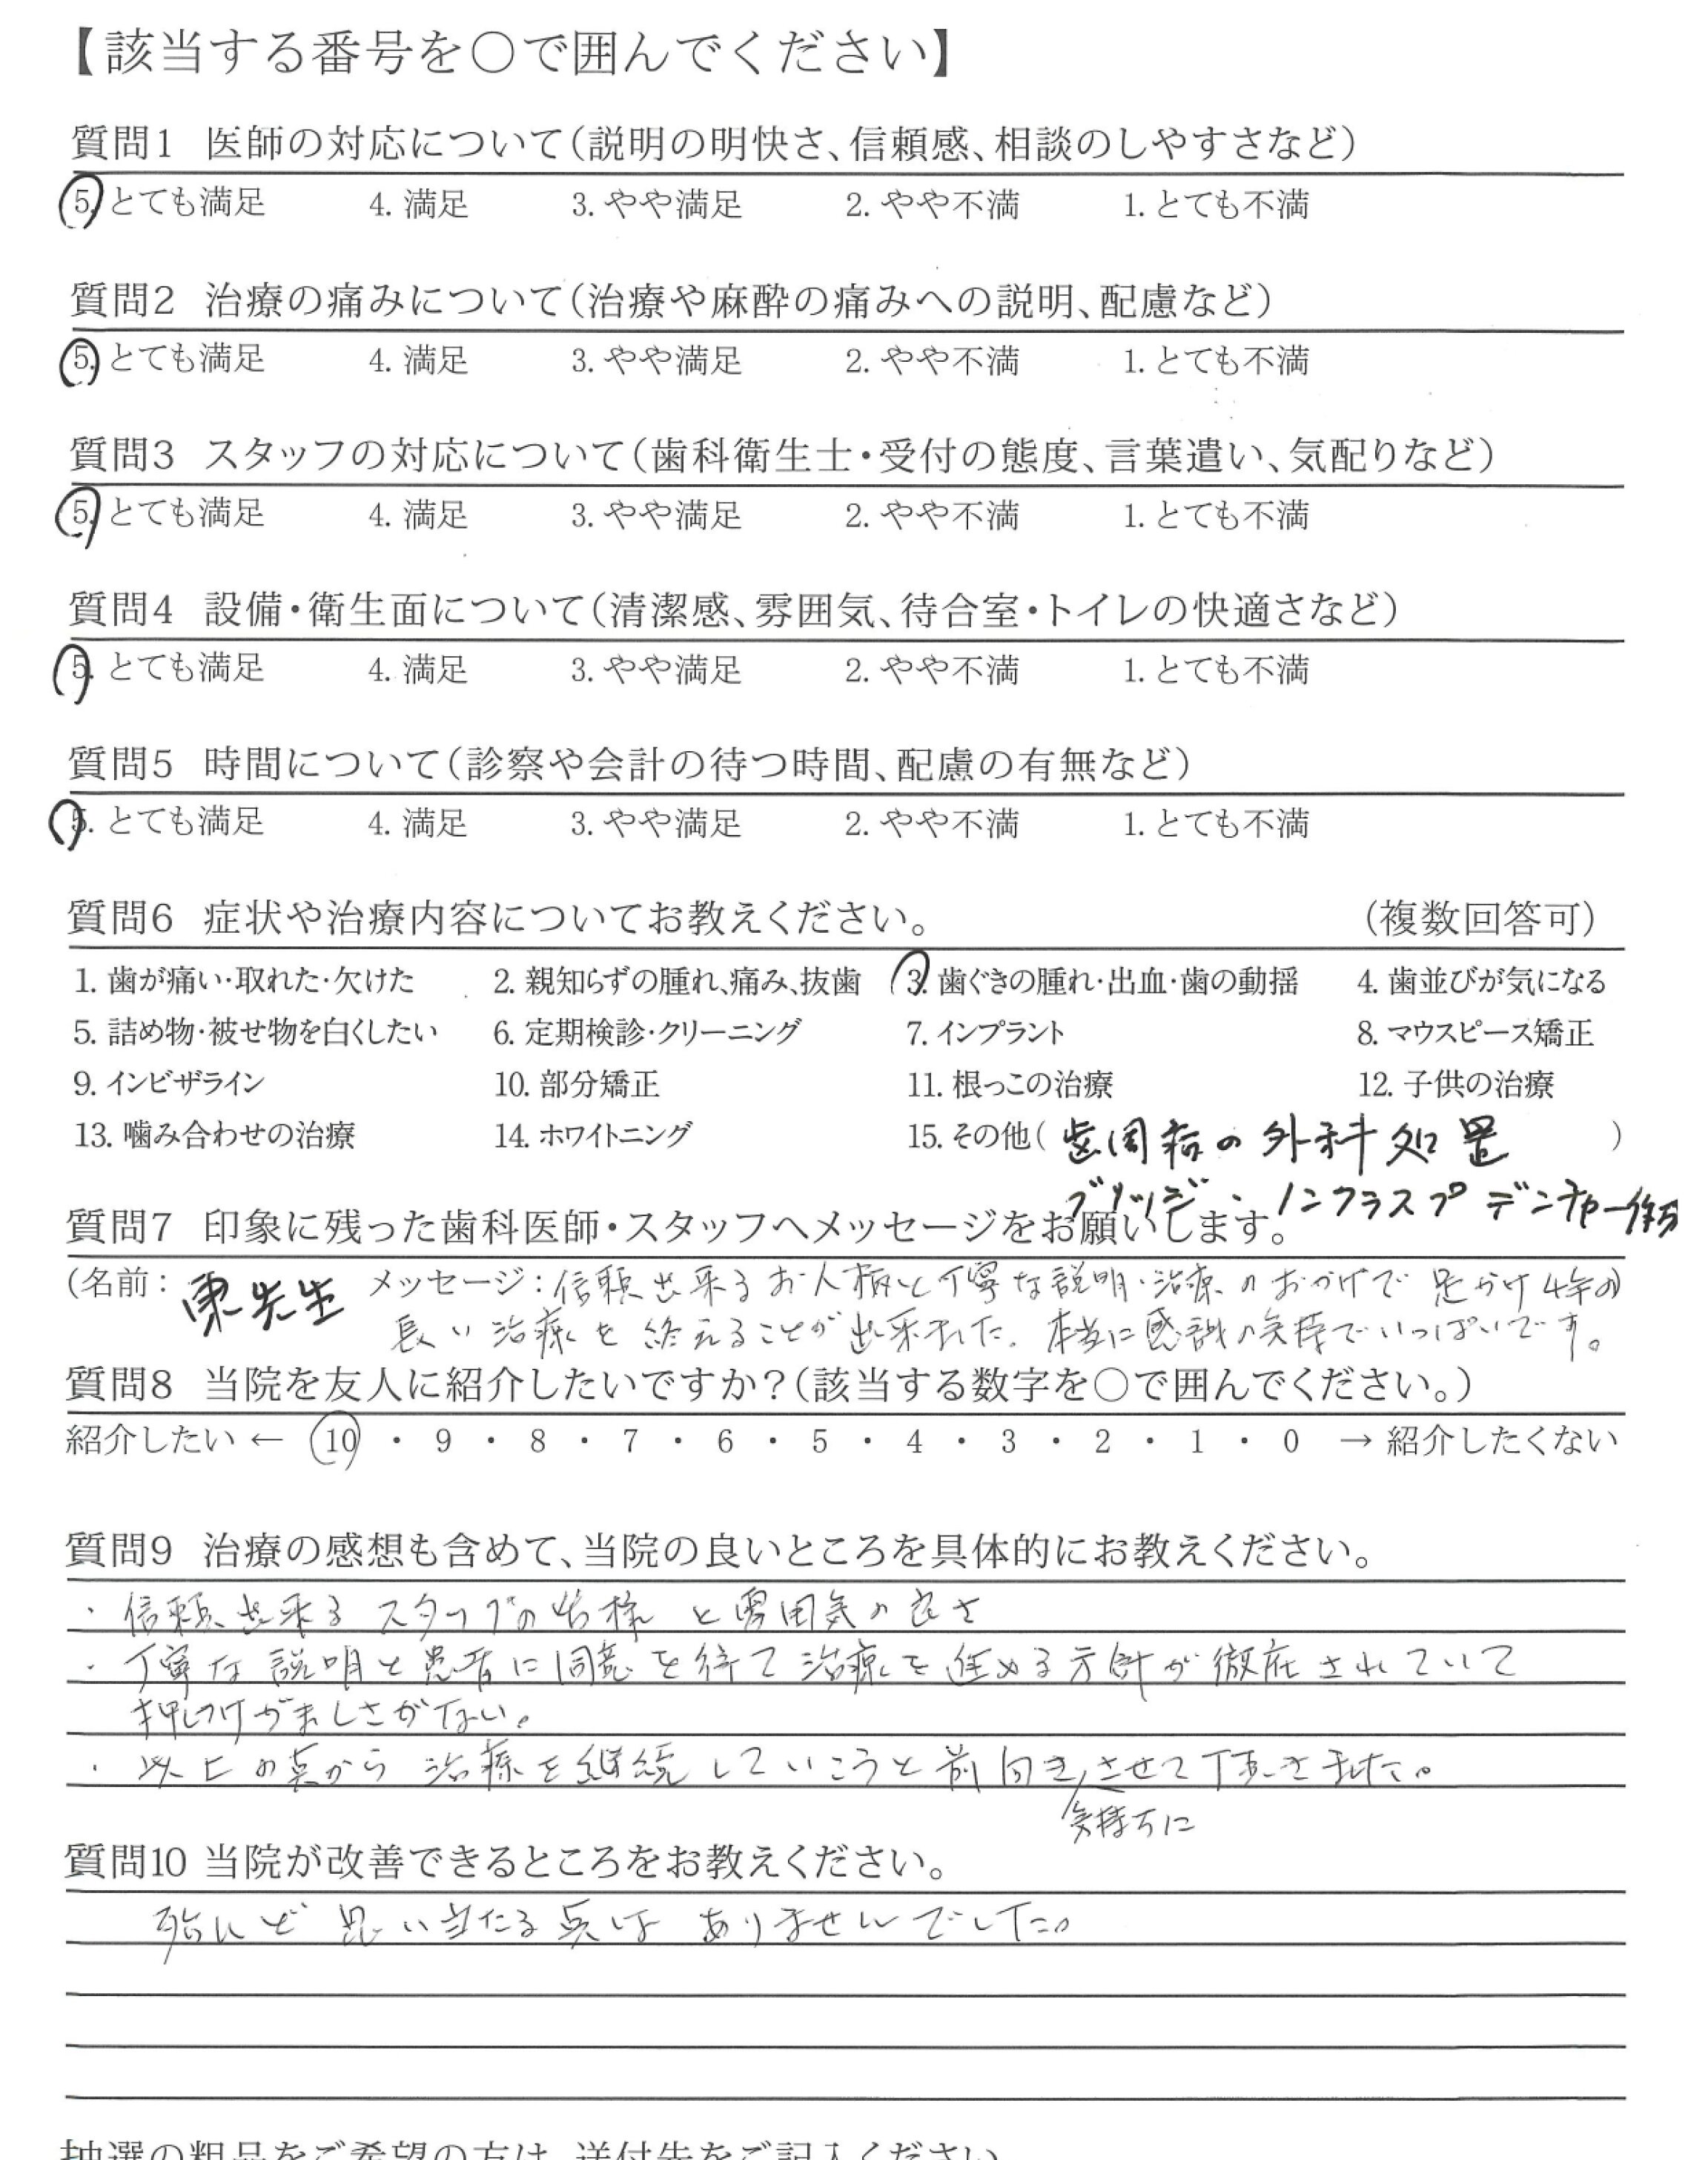 【該当する番号を○で囲んでください】
質問1 医師の対応について(説明の明快さ、信頼感、相談のしやすさなど)
5. とても満足 4. 満足 3. やや満足 2. やや不満 1. とても不満
質問2 治療の痛みについて(治療や麻酔の痛みへの説明、配慮など)
5. とても満足 4. 満足 3. やや満足 2. やや不満 1. とても不満
質問3 スタッフの対応について(歯科衛生士・受付の態度、言葉遣い、気配りなど)
5. とても満足 4. 満足 3. やや満足 2. やや不満 1. とても不満
質問4 設備・衛生面について(清潔感、雰囲気、待合室・トイレの快適さなど)
5. とても満足 4. 満足 3. やや満足 2. やや不満 1. とても不満
質問5 時間について(診察や会計の待つ時間、配慮の有無など)
5. とても満足 4. 満足 3. やや満足 2. やや不満 1. とても不満
質問6 症状や治療内容についてお教えください。 (複数回答可)
1. 歯が痛い・取れた・欠けた 2. 親知らずの腫れ、痛み、抜歯 3. 歯ぐきの腫れ・出血・歯の動揺 4. 歯並びが気になる
5. 詰め物・被せ物を白くしたい 6. 定期検診・クリーニング 7. インプラント 8. マウスピース矯正
9. インビザライン 10. 部分矯正 11. 根っこの治療 12. 子供の治療
13. 噛み合わせの治療 14. ホワイトニング 15. その他( 歯周病の外科処置 )
ブリッジ・ノンクラスプデンチャー作成
質問7 印象に残った歯科医師・スタッフへメッセージをお願いします。
(名前: 東先生 メッセージ: 信頼出来るお人柄と丁寧な説明・治療のおかげで足かけ4年の
長い治療を終えることが出来ました。本当に感謝の気持でいっぱいです。
質問8 当院を友人に紹介したいですか?(該当する数字を○で囲んでください。)
紹介したい ← 10 ・ 9 ・ 8 ・ 7 ・ 6 ・ 5 ・ 4 ・ 3 ・ 2 ・ 1 ・ 0 → 紹介したくない
質問9 治療の感想も含めて、当院の良いところを具体的にお教えください。
・信頼出来るスタッフの皆様と雰囲気の良さ
・丁寧な説明と患者に同意を得て治療を進める方針が徹底されていて
押しつけがましさがない。
・以上の点から治療を継続していこうと前向き させて頂きました。
気持ちに
質問10 当院が改善できるところをお教えください。
殆んど思い当たる点はありませんでした。
抽選の粗品をご希望の方は、送付先をご記入ください